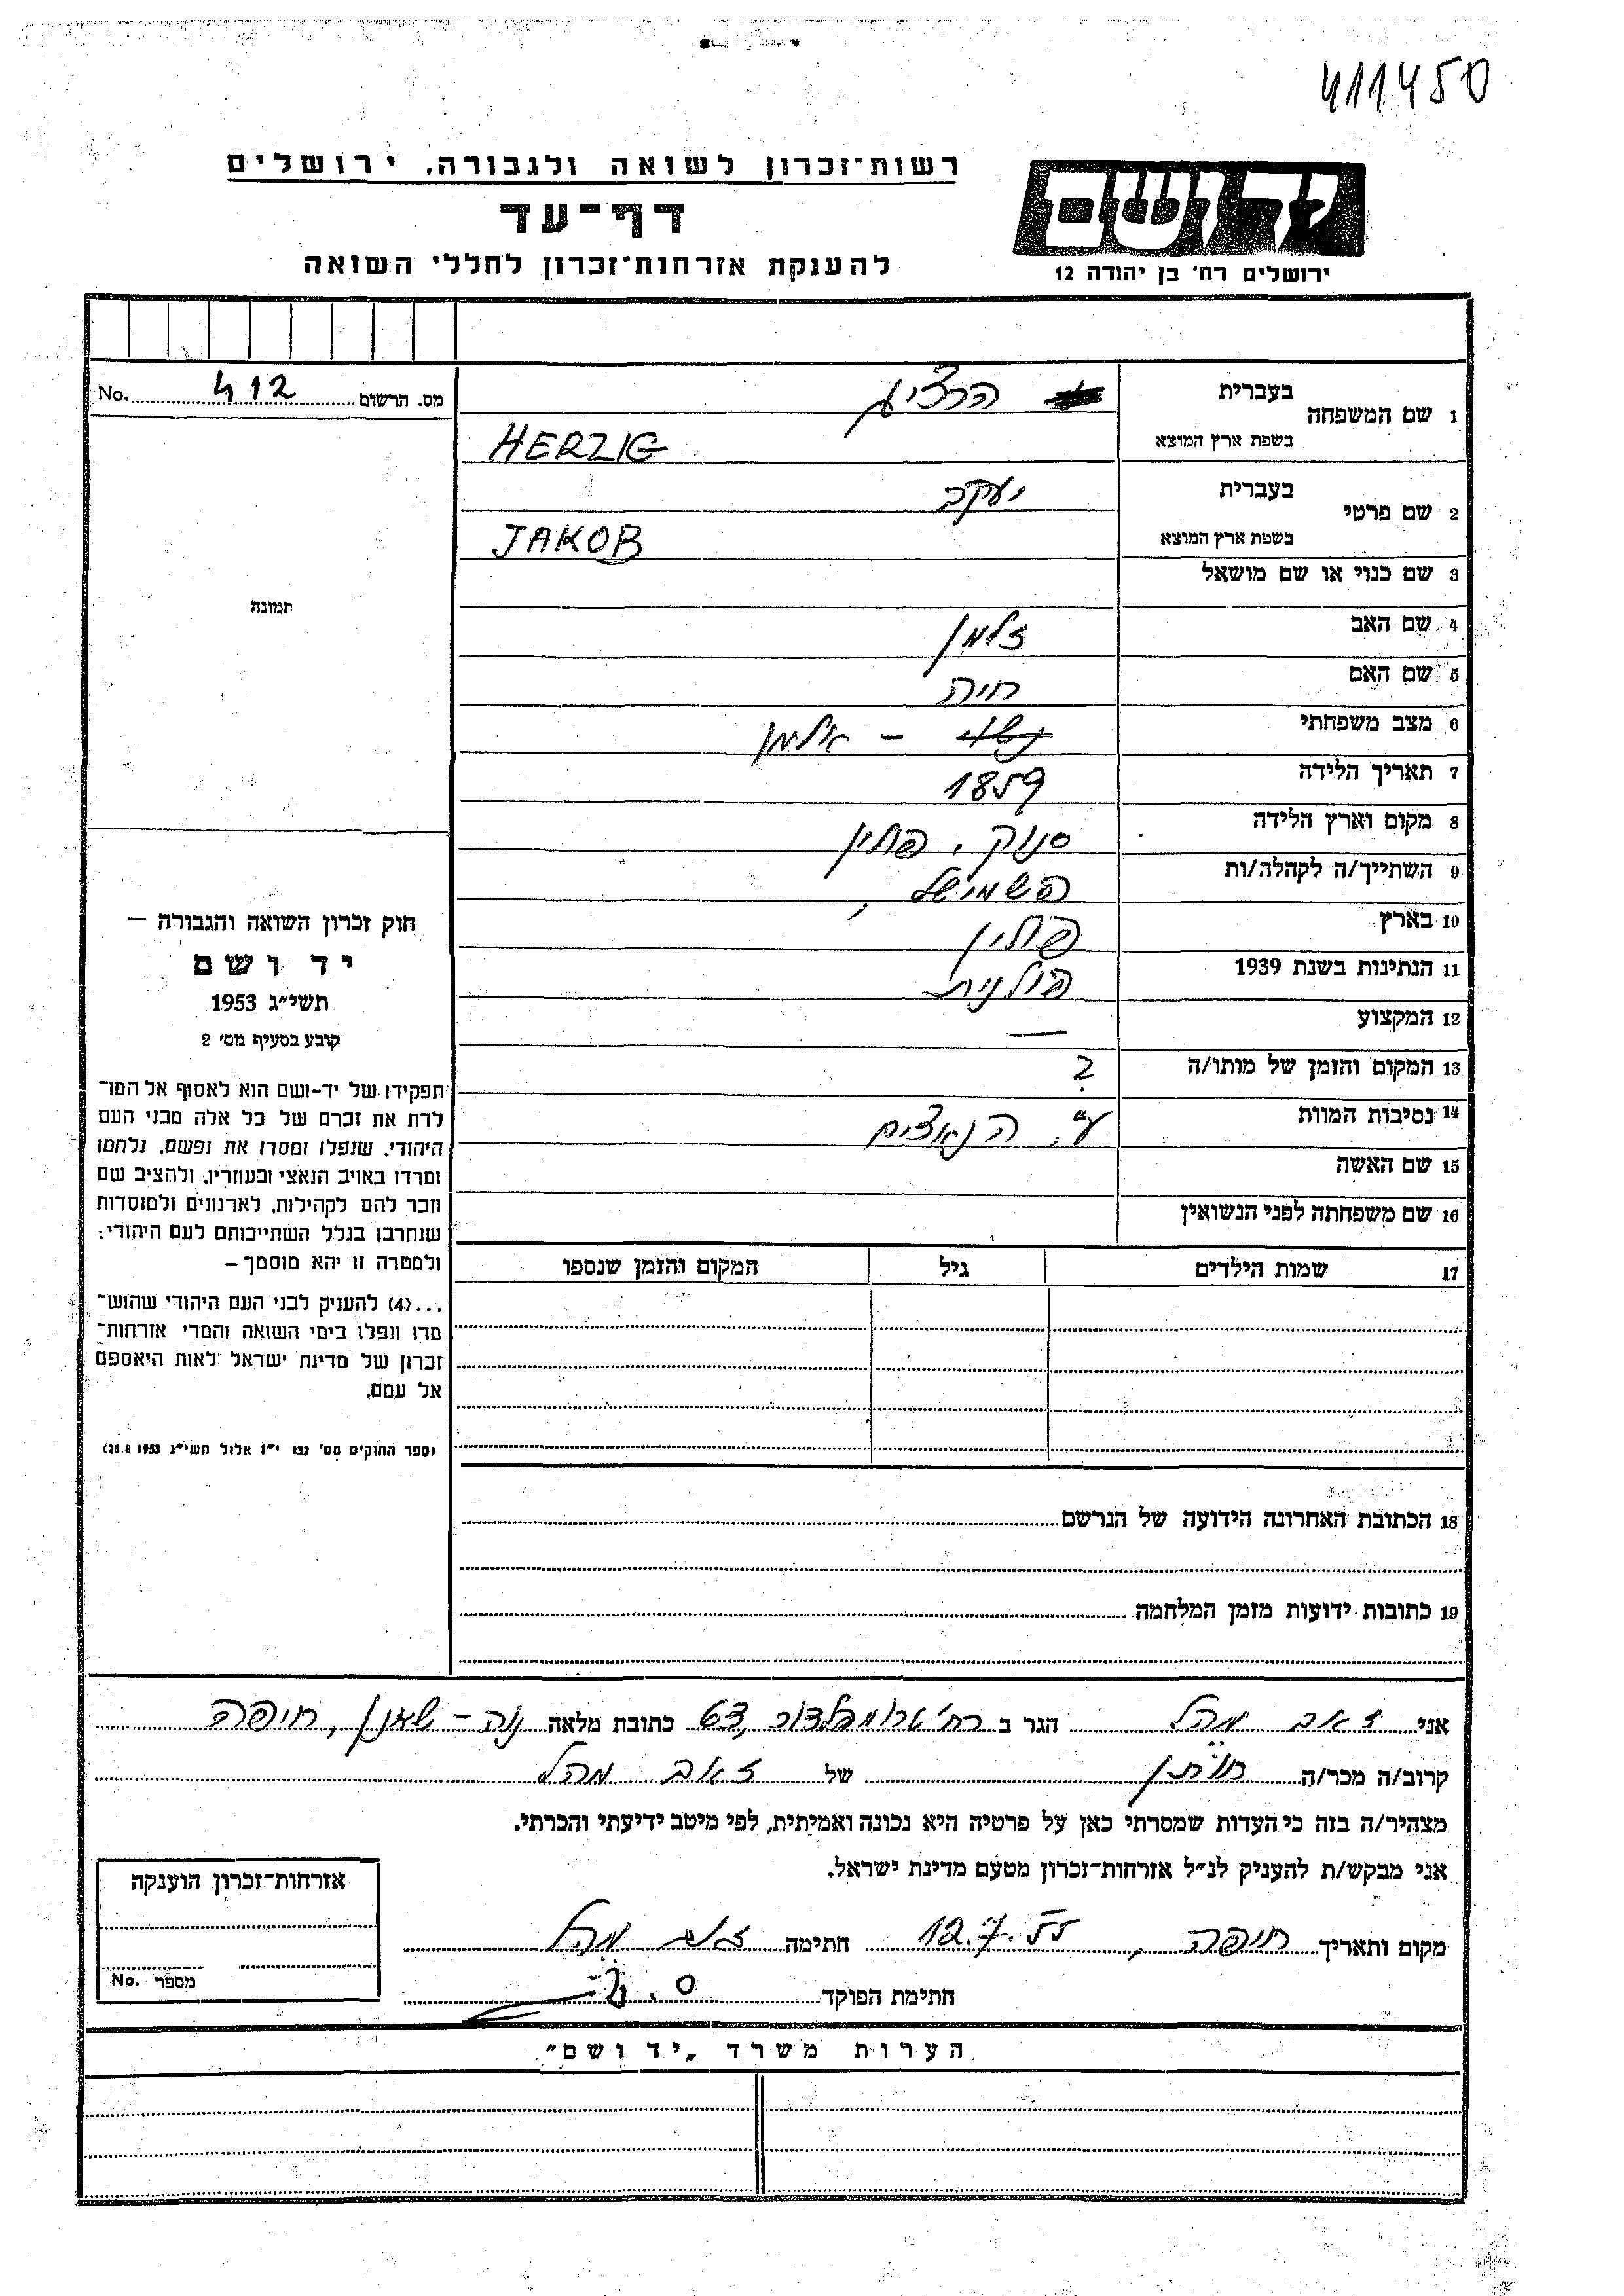 411450
ידושם
ירושלים רח' בן יהודה 12
רשות־זכרון לשואה ולגבורה, ירושלים
דף־עד
להענקת אזרחות־זכרון לחללי השואה
מס. הרשום 412 No.
1 שם המשפחה
בעברית הרציג
בשפת ארץ המוצא HERZIG
2 שם פרטי
בעברית יעקב
בשפת ארץ המוצא JAKOB
3 שם כנוי או שם מושאל
4 שם האב זלמן
5 שם האם חיה
6 מצב משפחתי נשוי - אלמן
7 תאריך הלידה 1859
8 מקום וארץ הלידה סנוק, פולין
9 השתייך/ה לקהלה/ות פשמישל
10 בארץ פולין
11 הנתינות בשנת 1939 פולנית
12 המקצוע —
13 המקום והזמן של מותו/ה ?
14 נסיבות המוות ע"י הנאצים
15 שם האשה
16 שם משפחתה לפני הנשואין
17 שמות הילדים גיל המקום והזמן שנספו
18 הכתובת האחרונה הידועה של הנרשם
19 כתובות ידועות מזמן המלחמה
תמונה
חוק זכרון השואה והגבורה —
יד ושם
תשי"ג 1953
קובע בסעיף מס' 2
תפקידו של יד-ושם הוא לאסוף אל המו־
לדת את זכרם של כל אלה מבני העם
היהודי, שנפלו ומסרו את נפשם, נלחמו
ומרדו באויב הנאצי ובעוזריו, ולהציב שם
וזכר להם לקהילות, לארגונים ולמוסדות
שנחרבו בגלל השתייכותם לעם היהודי;
ולמטרה זו יהא מוסמך —
...(4) להעניק לבני העם היהודי שהוש־
מדו ונפלו בימי השואה והמרי אזרחות־
זכרון של מדינת ישראל לאות היאספם
אל עמם.
(ספר החוקים מס' 132 י"ז אלול תשי"ג 28.8.1953)
אני זאב מהל הגר ב רח' טרומפלדור, 63 כתובת מלאה נוה-שאנן, חיפה
קרוב/ה מכר/ה חותן של זאב מהל
מצהיר/ה בזה כי העדות שמסרתי כאן על פרטיה היא נכונה ואמיתית, לפי מיטב ידיעתי והכרתי.
אני מבקש/ת להעניק לנ"ל אזרחות-זכרון מטעם מדינת ישראל.
מקום ותאריך חיפה, 12.7.55 חתימה זאב מהל
חתימת הפוקד
אזרחות-זכרון הוענקה
מספר No.
הערות משרד „יד ושם"